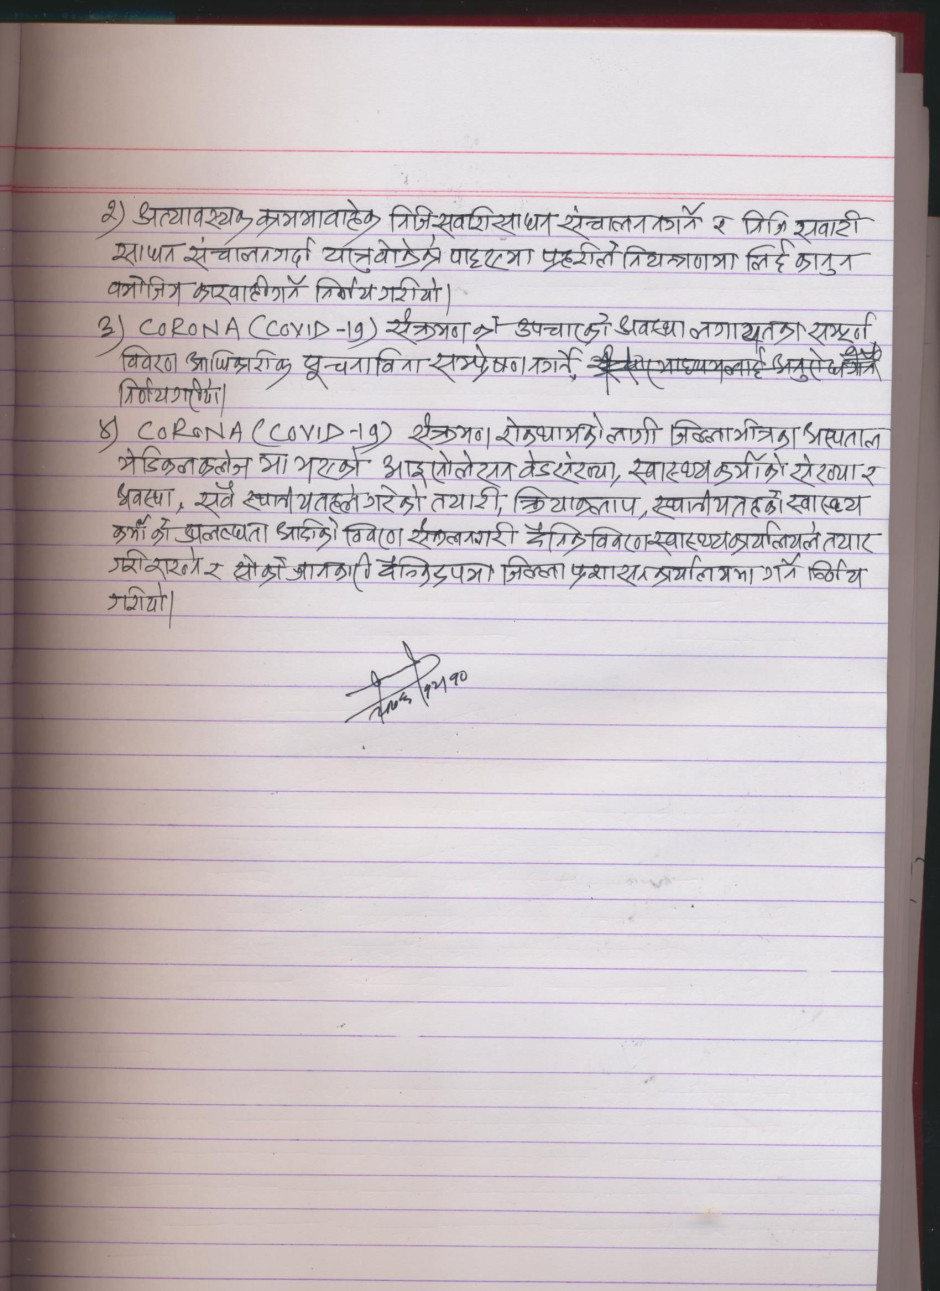 २) अत्यावश्यक काममा वाहेक निजि सवारी साधन संन्चालन नगर्ने र निजि सवारी
साधन संन्चालन गर्दा यात्रु वोकेको पाइएमा प्रहरीले नियन्त्रणमा लिई कानुन
वमोजिम कारवाही गर्ने निर्णय गरीयो।
३) CORONA (COVID-19) संक्रमण को उपचारको अवस्था लगायतका सम्पूर्ण
विवरण आधिकारीक सूचना विना सम्प्रेषण नगर्न, माध्यमलाई अनुरोध गर्ने
निर्णय गरीयो।
४) CORONA (COVID-19) संक्रमण रोकथामको लागी जिल्ला भीत्रका अस्पताल
मेडिकल कलेज मा भएको आइसोलेसन वेड संख्या, स्वास्थ्य कर्मीको संख्या र
अवस्था, सवै स्थानीय तहले गरेको तयारी, क्रियाकलाप, स्थानीय तहको स्वास्थ्य
कर्मी को उपलब्धता आदीको विवरण संकलन गरी दैनिक विवरण स्वास्थ्य कार्यालयले तयार
गरी राख्ने र सोको जानकारी दैनिक रुपमा जिल्ला प्रशासन कार्यालयमा गर्ने निर्णय
गरीयो।